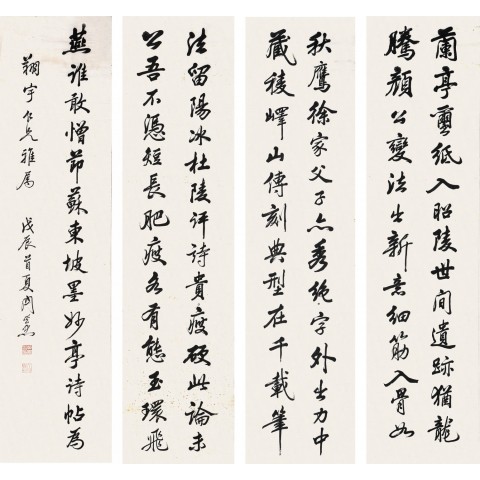 蘭亭繭紙入昭陵世間遺跡猶龍
騰顏公變法出新意細筋入骨如
秋鷹徐家父子亦秀絕字外出力中
藏稜嶧山傳刻典型在千載筆
法留陽冰杜陵評詩貴瘦硬此論未
公吾不憑短長肥瘦各有態玉環飛
燕誰敢憎節蘇東坡墨妙亭詩帖為
翔宇仁兄雅屬 戊辰首夏周